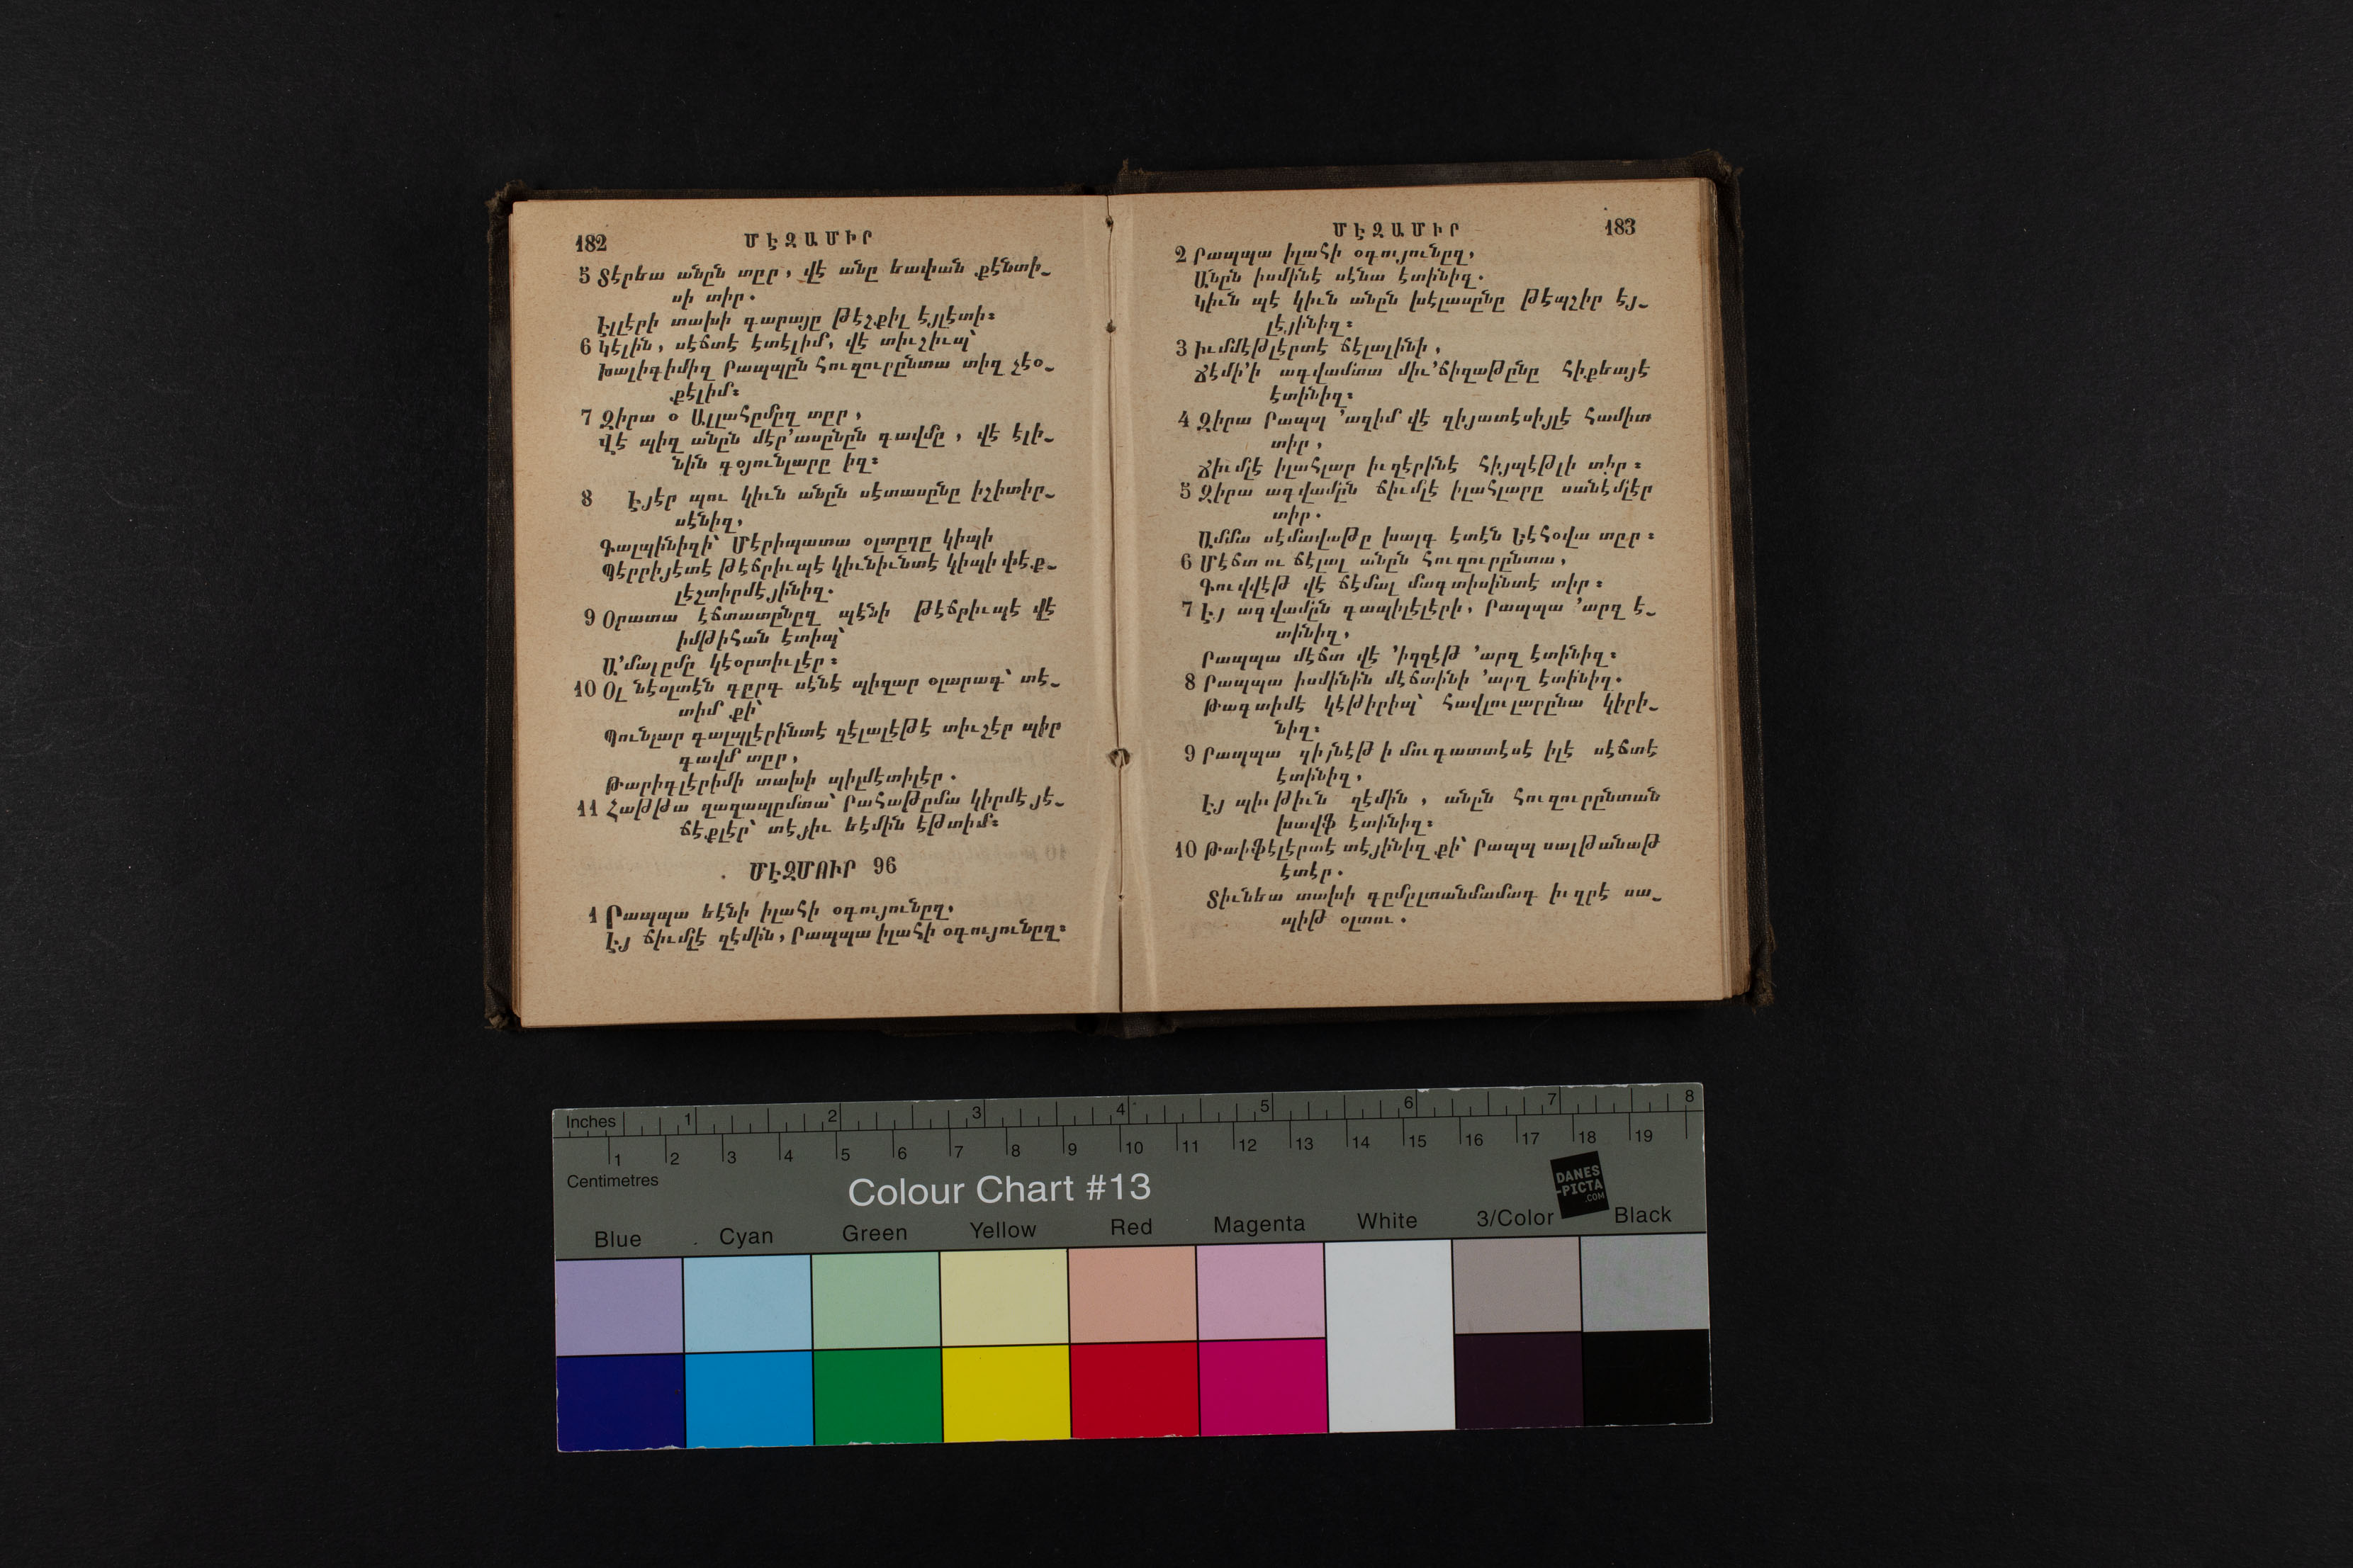 182 ՄԷԶԱՄԻՐ
5 Տէրեա անըն տըր, վէ անը եափան քէնտի֊
սի տիր.
Էլլէրի տախի գարայը թէշքիլ էյլէտի։
6 Կէլին, սէճտէ էտէլիմ, վէ տիւշիւպ՝
Խալիգիմիզ Րապպըն հուզուրընտա տիզ չէօ֊
քէլիմ։
7 Զիրա օ Ալլահըմըզ տըր,
Վէ պիզ անըն մէր՚ասընըն գավմը, վէ էլի֊
նին գօյունլարը իզ։
8 Էյէր պու կիւն անըն սէտասընը իշիտիր֊
սէնիզ,
Գալպինիզի՝ Մէրիպատա օլտըղը կիպի
Պէրրիյէտէ թէճրիւպէ կիւնիւնտէ կիպի փէք֊
լէշտիրմէյինիզ.
9 Օրատա էճտատընըզ պէնի թէճրիւպէ վէ
իմթիհան էտիպ՝
Ա՚մալըմը կէօրտիւլէր։
10 Օլ նէօլտէն գըրգ սէնէ պիզար օլարագ՝ տէ֊
տիմ քի՝
Պունլար գալպլէրինտէ զէլալէթէ տիւշէր պիր
գավմ տըր,
Թարիգլէրիմի տախի պիլմէտիլէր.
11 Հաթթա ղազապըմտա՝ Րահաթըմա կիրմէյէ֊
ճէքլէր՝ տէյիւ եէմին էթտիմ։
ՄԷԶՄՈՒՐ 96
1 Րապպա եէնի իլահի օգույունըզ,
Էյ ճիւմլէ զէմին, Րապպա իլահի օգույունըզ։
ՄԷԶԱՄԻՐ 183
2 Րապպա իլահի օգույունըզ,
Անըն իսմինէ սէնա էտինիզ.
Կիւն պէ կիւն անըն խէլասընը թէպշիր էյ֊
լէյինիզ։
3 Իւմմէթլէրտէ ճէլալինի,
Ճէմի՚ի ագվամտա միւ՚ճիզաթընը հիքեայէ
էտինիզ։
4 Զիրա Րապպ ՚ազիմ վէ զիյատէսիյլէ համիտ
տիր,
Ճիւմլէ իլահլար իւզէրինէ հիյպէթլի տիր։
5 Զիրա ագվամըն ճիւմլէ իլահլարը սանէմլէր
տիր.
Ամմա սէմավաթը խալգ էտէն Եէհօվա տըր։
6 Մէճտ ու ճէլալ անըն հուզուրընտա,
Գուվվէթ վէ ճէմալ մագտիսինտէ տիր։
7 Էյ ագվամըն գապիլէլէրի, Րապպա ՚արզ է֊
տինիզ,
Րապպա մէճտ վէ ՚իզզէթ ՚արզ էտինիզ։
8 Րապպա իսմինին մէճտինի ՚արզ էտինիզ.
Թագտիմէ կէթիրիպ՝ հավլուլարընա կիրի֊
նիզ։
9 Րապպա զիյնէթ ի մուգատտէսէ իլէ սէճտէ
էտինիզ,
Էյ պիւթիւն զէմին, անըն հուզուրընտան
խավֆ էտինիզ։
10 Թաիֆէլէրտէ տէյինիզ քի՝ Րապպ սալթանաթ
էտէր.
Տիւնեա տախի գըմըլտանմամագ իւզրէ սա֊
պիթ օլտու.
Inches 1 2 3 4 5 6 7 8
1 2 3 4 5 6 7 8 9 10 11 12 13 14 15 16 17 18 19
Centimetres
Colour Chart #13
DANES
-PICTA
.COM
Blue Cyan Green Yellow Red Magenta White 3/Color Black